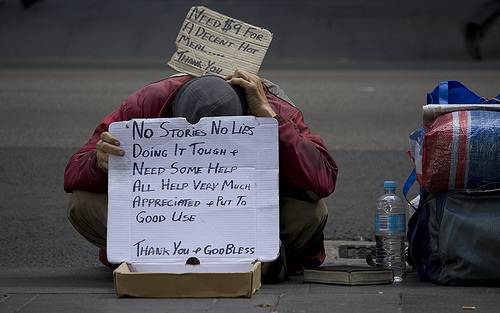 NEED $9 FOR
A DECENT HOT
MEAL....
THANK YOU
NO STORIES NO LIES
DOING IT TOUGH &
NEED SOME HELP
ALL HELP VERY MUCH
APPRECIATED & PUT TO
GOOD USE
THANK YOU & GOD BLESS